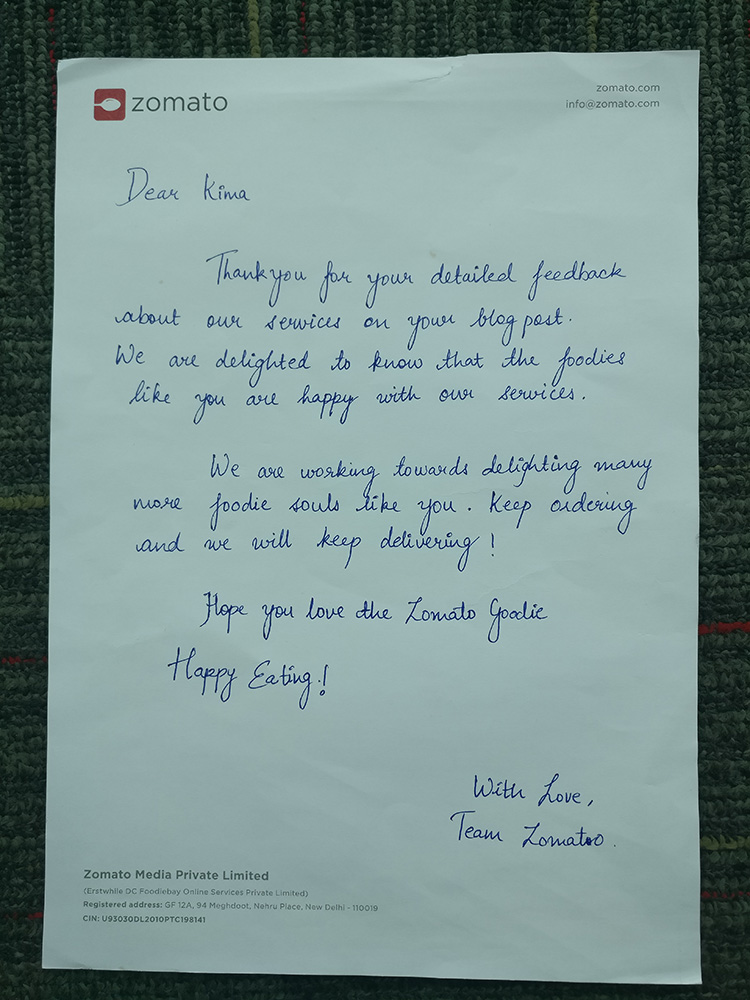 zomato
zomato.com
info@zomato.com
Dear Kima
Thankyou for your detailed feedback
about our services on your blog post.
We are delighted to know that the foodies
like you are happy with our services.
We are working towards delighting many
more foodie souls like you. Keep ordering
and we will keep delivering!
Hope you love the Zomato Goodie
Happy Eating!
With Love,
Team Zomato.
Zomato Media Private Limited
(Erstwhile DC Foodiebay Online Services Private Limited)
Registered address: GF 12A, 94 Meghdoot, Nehru Place, New Delhi - 110019
CIN: U93030DL2010PTC198141